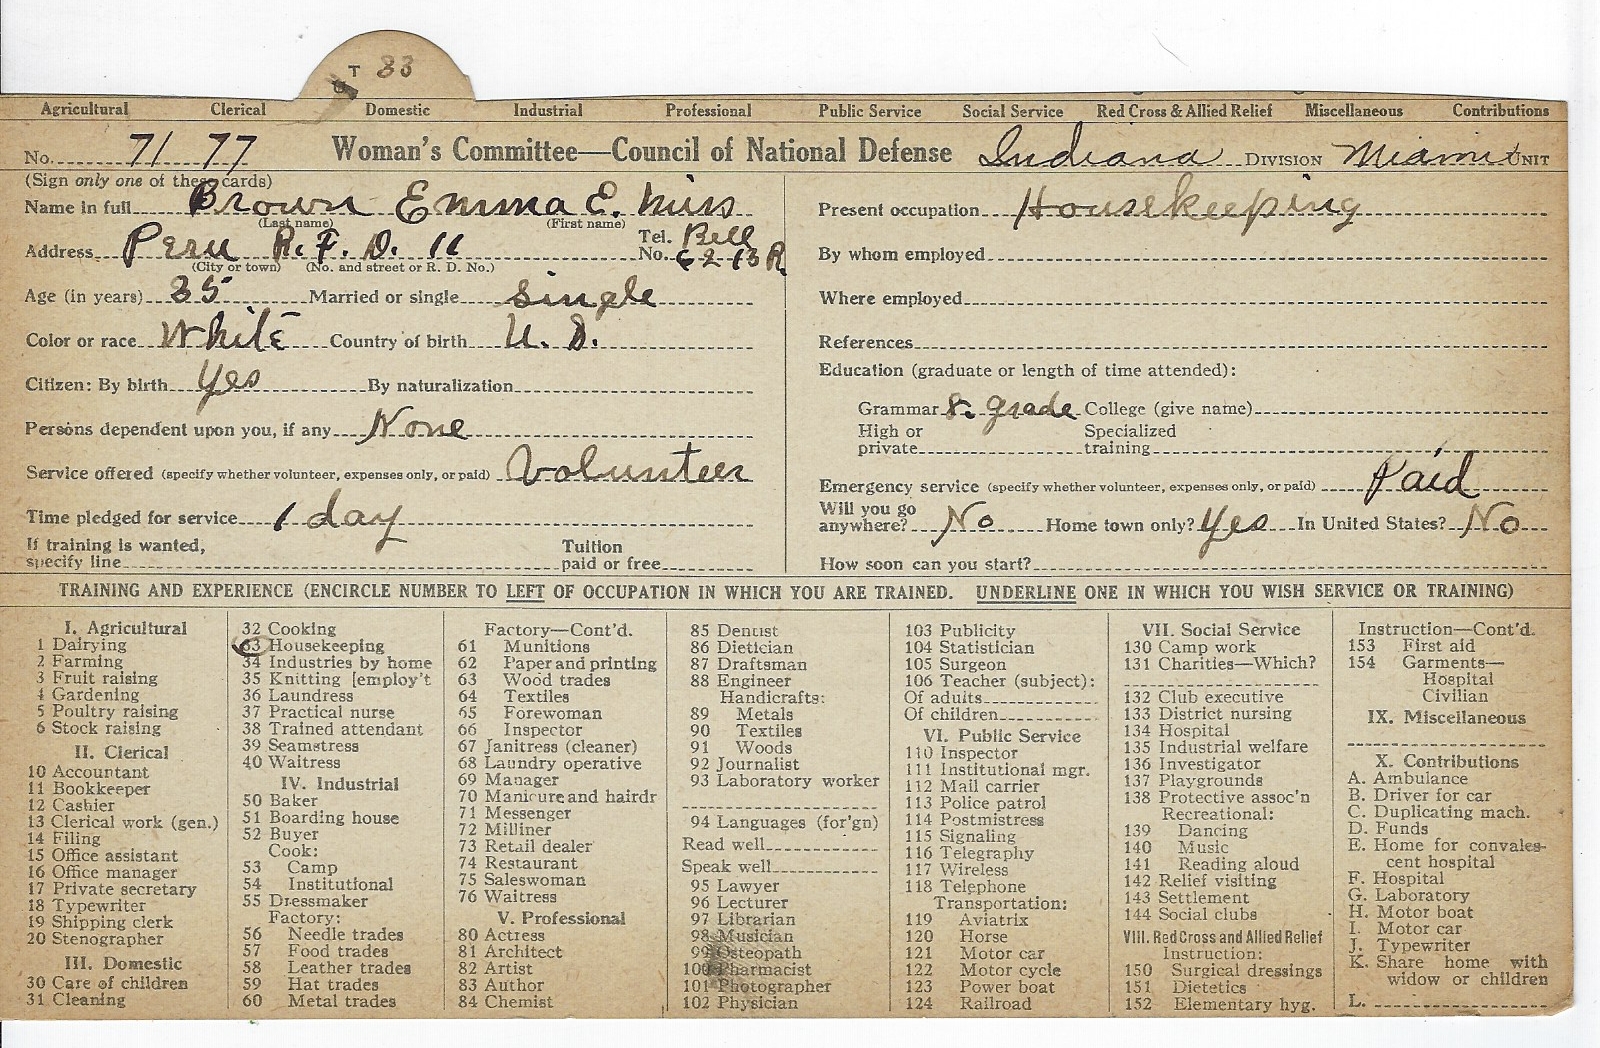 T 33
Agricultural Clerical Domestic Industrial Professional Public Service Social Service Red Cross & Allied Relief Miscellaneous Contributions
No. 71 77 Woman's Committee—Council of National Defense Indiana DIVISION Miami UNIT
(Sign only one of these cards)
Name in full Brown Emma E. Miss
(Last name) (First name)
Address Peru R. F. D. 11 Tel. No. Bell 6213 R.
(City or town) (No. and street or R. D. No.)
Age (in years) 35 Married or single single
Color or race White Country of birth U. S.
Citizen: By birth Yes By naturalization
Persons dependent upon you, if any None
Service offered (specify whether volunteer, expenses only, or paid) Volunteer
Time pledged for service 1 day
If training is wanted, Tuition
specify line paid or free
Present occupation Housekeeping
By whom employed
Where employed
References
Education (graduate or length of time attended):
Grammar 8. grade College (give name)
High or Specialized
private training
Emergency service (specify whether volunteer, expenses only, or paid) Paid
Will you go
anywhere? No Home town only? Yes In United States? No
How soon can you start?
TRAINING AND EXPERIENCE (ENCIRCLE NUMBER TO LEFT OF OCCUPATION IN WHICH YOU ARE TRAINED. UNDERLINE ONE IN WHICH YOU WISH SERVICE OR TRAINING)
I. Agricultural
1 Dairying
2 Farming
3 Fruit raising
4 Gardening
5 Poultry raising
6 Stock raising
II. Clerical
10 Accountant
11 Bookkeeper
12 Cashier
13 Clerical work (gen.)
14 Filing
15 Office assistant
16 Office manager
17 Private secretary
18 Typewriter
19 Shipping clerk
20 Stenographer
III. Domestic
30 Care of children
31 Cleaning
32 Cooking
33 Housekeeping
34 Industries by home
35 Knitting [employ't
36 Laundress
37 Practical nurse
38 Trained attendant
39 Seamstress
40 Waitress
IV. Industrial
50 Baker
51 Boarding house
52 Buyer
Cook:
53 Camp
54 Institutional
55 Dressmaker
Factory:
56 Needle trades
57 Food trades
58 Leather trades
59 Hat trades
60 Metal trades
Factory—Cont'd.
61 Munitions
62 Paper and printing
63 Wood trades
64 Textiles
65 Forewoman
66 Inspector
67 Janitress (cleaner)
68 Laundry operative
69 Manager
70 Manicure and hairdr
71 Messenger
72 Milliner
73 Retail dealer
74 Restaurant
75 Saleswoman
76 Waitress
V. Professional
80 Actress
81 Architect
82 Artist
83 Author
84 Chemist
85 Dentist
86 Dietician
87 Draftsman
88 Engineer
Handicrafts:
89 Metals
90 Textiles
91 Woods
92 Journalist
93 Laboratory worker
94 Languages (for'gn)
Read well
Speak well
95 Lawyer
96 Lecturer
97 Librarian
98 Musician
99 Osteopath
100 Pharmacist
101 Photographer
102 Physician
103 Publicity
104 Statistician
105 Surgeon
106 Teacher (subject):
Of adults
Of children
VI. Public Service
110 Inspector
111 Institutional mgr.
112 Mail carrier
113 Police patrol
114 Postmistress
115 Signaling
116 Telegraphy
117 Wireless
118 Telephone
Transportation:
119 Aviatrix
120 Horse
121 Motor car
122 Motor cycle
123 Power boat
124 Railroad
VII. Social Service
130 Camp work
131 Charities—Which?
132 Club executive
133 District nursing
134 Hospital
135 Industrial welfare
136 Investigator
137 Playgrounds
138 Protective assoc'n
Recreational:
139 Dancing
140 Music
141 Reading aloud
142 Relief visiting
143 Settlement
144 Social clubs
VIII. Red Cross and Allied Relief
Instruction:
150 Surgical dressings
151 Dietetics
152 Elementary hyg.
Instruction—Cont'd.
153 First aid
154 Garments—
Hospital
Civilian
IX. Miscellaneous
X. Contributions
A. Ambulance
B. Driver for car
C. Duplicating mach.
D. Funds
E. Home for convales-
cent hospital
F. Hospital
G. Laboratory
H. Motor boat
I. Motor car
J. Typewriter
K. Share home with
widow or children
L.